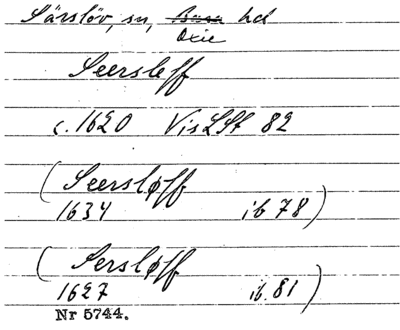 Särslöv, sn, Bara hd
Oxie
Seersleff
c. 1620 VisLSt 82
(Seersløff
1634 ib 78)
(Sersløff
1627 ib. 81)
Nr 5744.